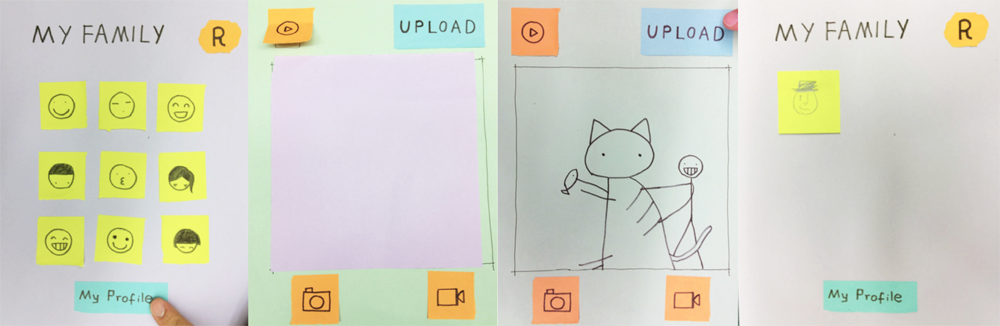 MY FAMILY
R
My Profile
UPLOAD
UPLOAD
MY FAMILY
R
My Profile